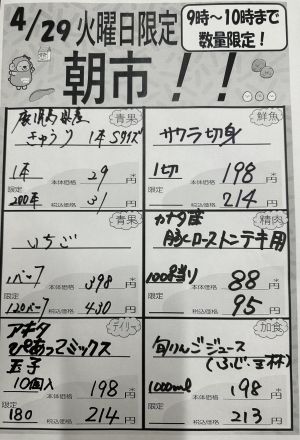 4/29火曜日限定
9時〜10時まで
数量限定！
朝市！！
青果
鹿児島県産
きゅうり 1本 Sサイズ
1本 本体価格 29円
限定 200本 税込価格 31円
鮮魚
サワラ切身
1切 本体価格 198円
限定 税込価格 214円
青果
いちご
1パック 本体価格 398円
限定 120パック 税込価格 430円
精肉
カナダ産
豚ロース トンテキ用
100g当り 本体価格 88円
限定 税込価格 95円
デイリー
アキタ
ぴあっこミックス
玉子
10個入 本体価格 198円
限定 180 税込価格 214円
加食
旬りんごジュース
(ふじ・王林)
1000ml 本体価格 198円
限定 税込価格 213円